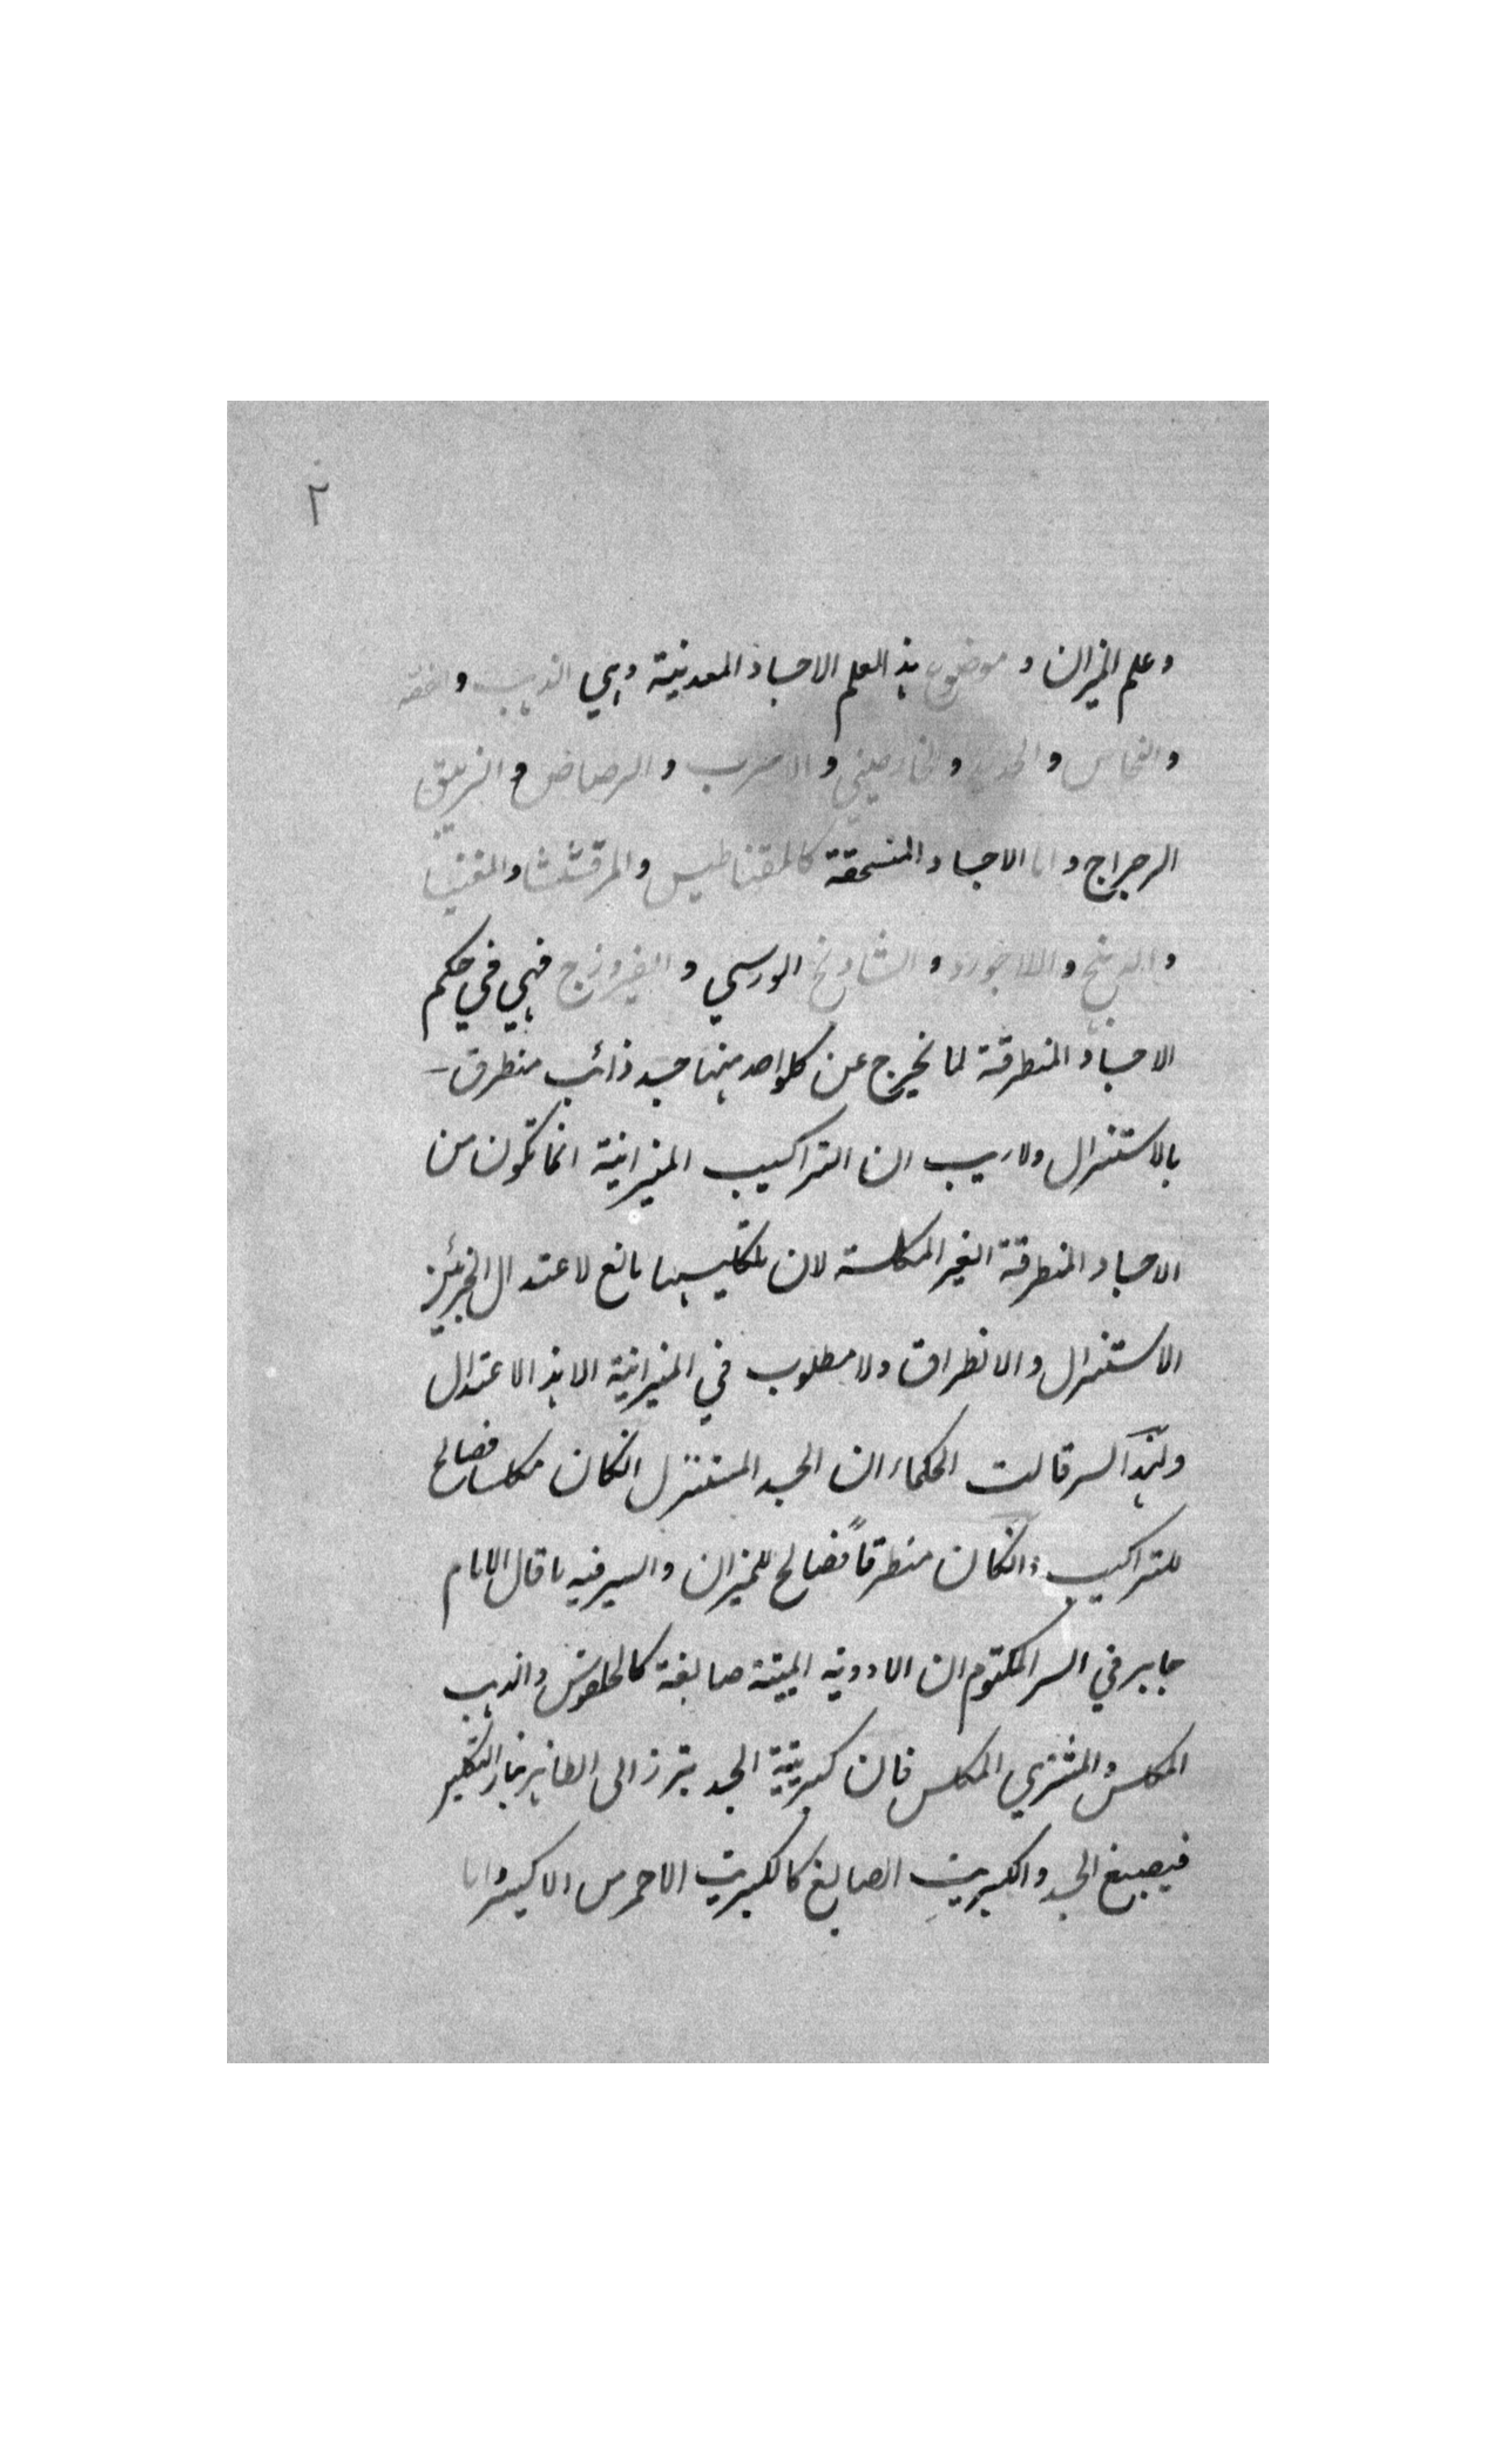 ٢
وعلم الميزان و موضوع هذ العلم الاجساد المعدنية وهي الذهب و الفضة
والنحاس و الحديد و الخارصيني و الاسرب و الرصاص و الزيبق
الرجراج و اما الاجساد المنسحقة كالمقناطيس و المرقشيثا و المغنيسا
و الدهنج و اللاجورد و الشادنج الورسي و الفيروزج فهي في حكم
الاجساد المنطرقة لما يخرج عن كلواحد منها جسد ذائب منطرق
بالاستنزال ولاريب ان التراكيب الميزانية انما تكون من
الاجساد المنطرقة الغير المكلسة لان تكليسها مانع لاعتدال
الاستنزال والانطراق ولا مطلوب في الميزانية الا هذ الاعتدال
ولهذا السر قالت الحكماء ان الجسد المستنزل انكان مكلسا فصالح
للتراكيب وانكان منطرقاً فصالح للميزان والسر فيه ما قال الامام
جابر في السر المكتوم ان الادوية الميتة صابغة كالحلقوس والذهب
المكلس والمشتري المكلس فان كبريتية الجسد تبرز الى الظاهر بنار التكليس
فيصبغ الجسد والكبريت الصابغ كالكبريت الاحمر من الاكسير واما